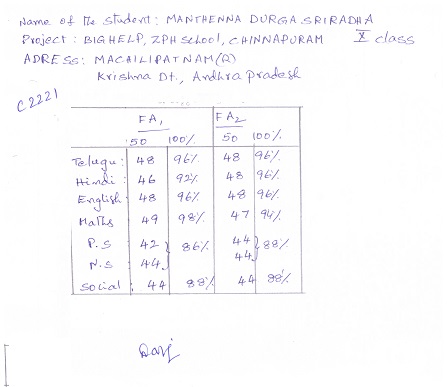 Name of the student: MANTHENNA DURGA SRIRADHA
Project : BIGHELP, ZPH School, CHINNAPURAM X class
ADRESS: MACHILIPATNAM(R)
Krishna Dt., Andhra pradesh
C2221
FA1 FA2
50 100% 50 100%
Telugu: 48 96% 48 96%
Hindi : 46 92% 48 96%
English: 48 96% 48 96%
Maths 49 98% 47 94%
P.S 42 86% 44 88%
N.S 44 44
Social : 44 88% 44 88%